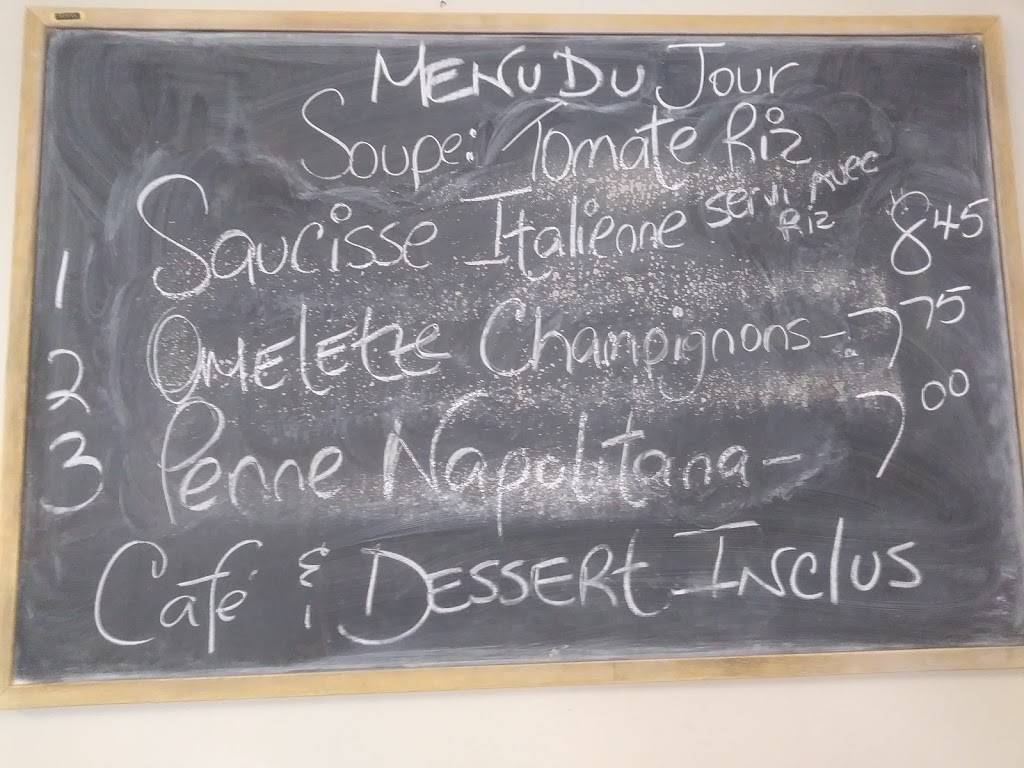 MENU DU Jour
Soupe: Tomate Riz
1 Saucisse Italienne servi Avec Riz 8 45
2 Omelette Champignons - 7 75
3 Penne Napolitana - 7 00
Café & Dessert Inclus